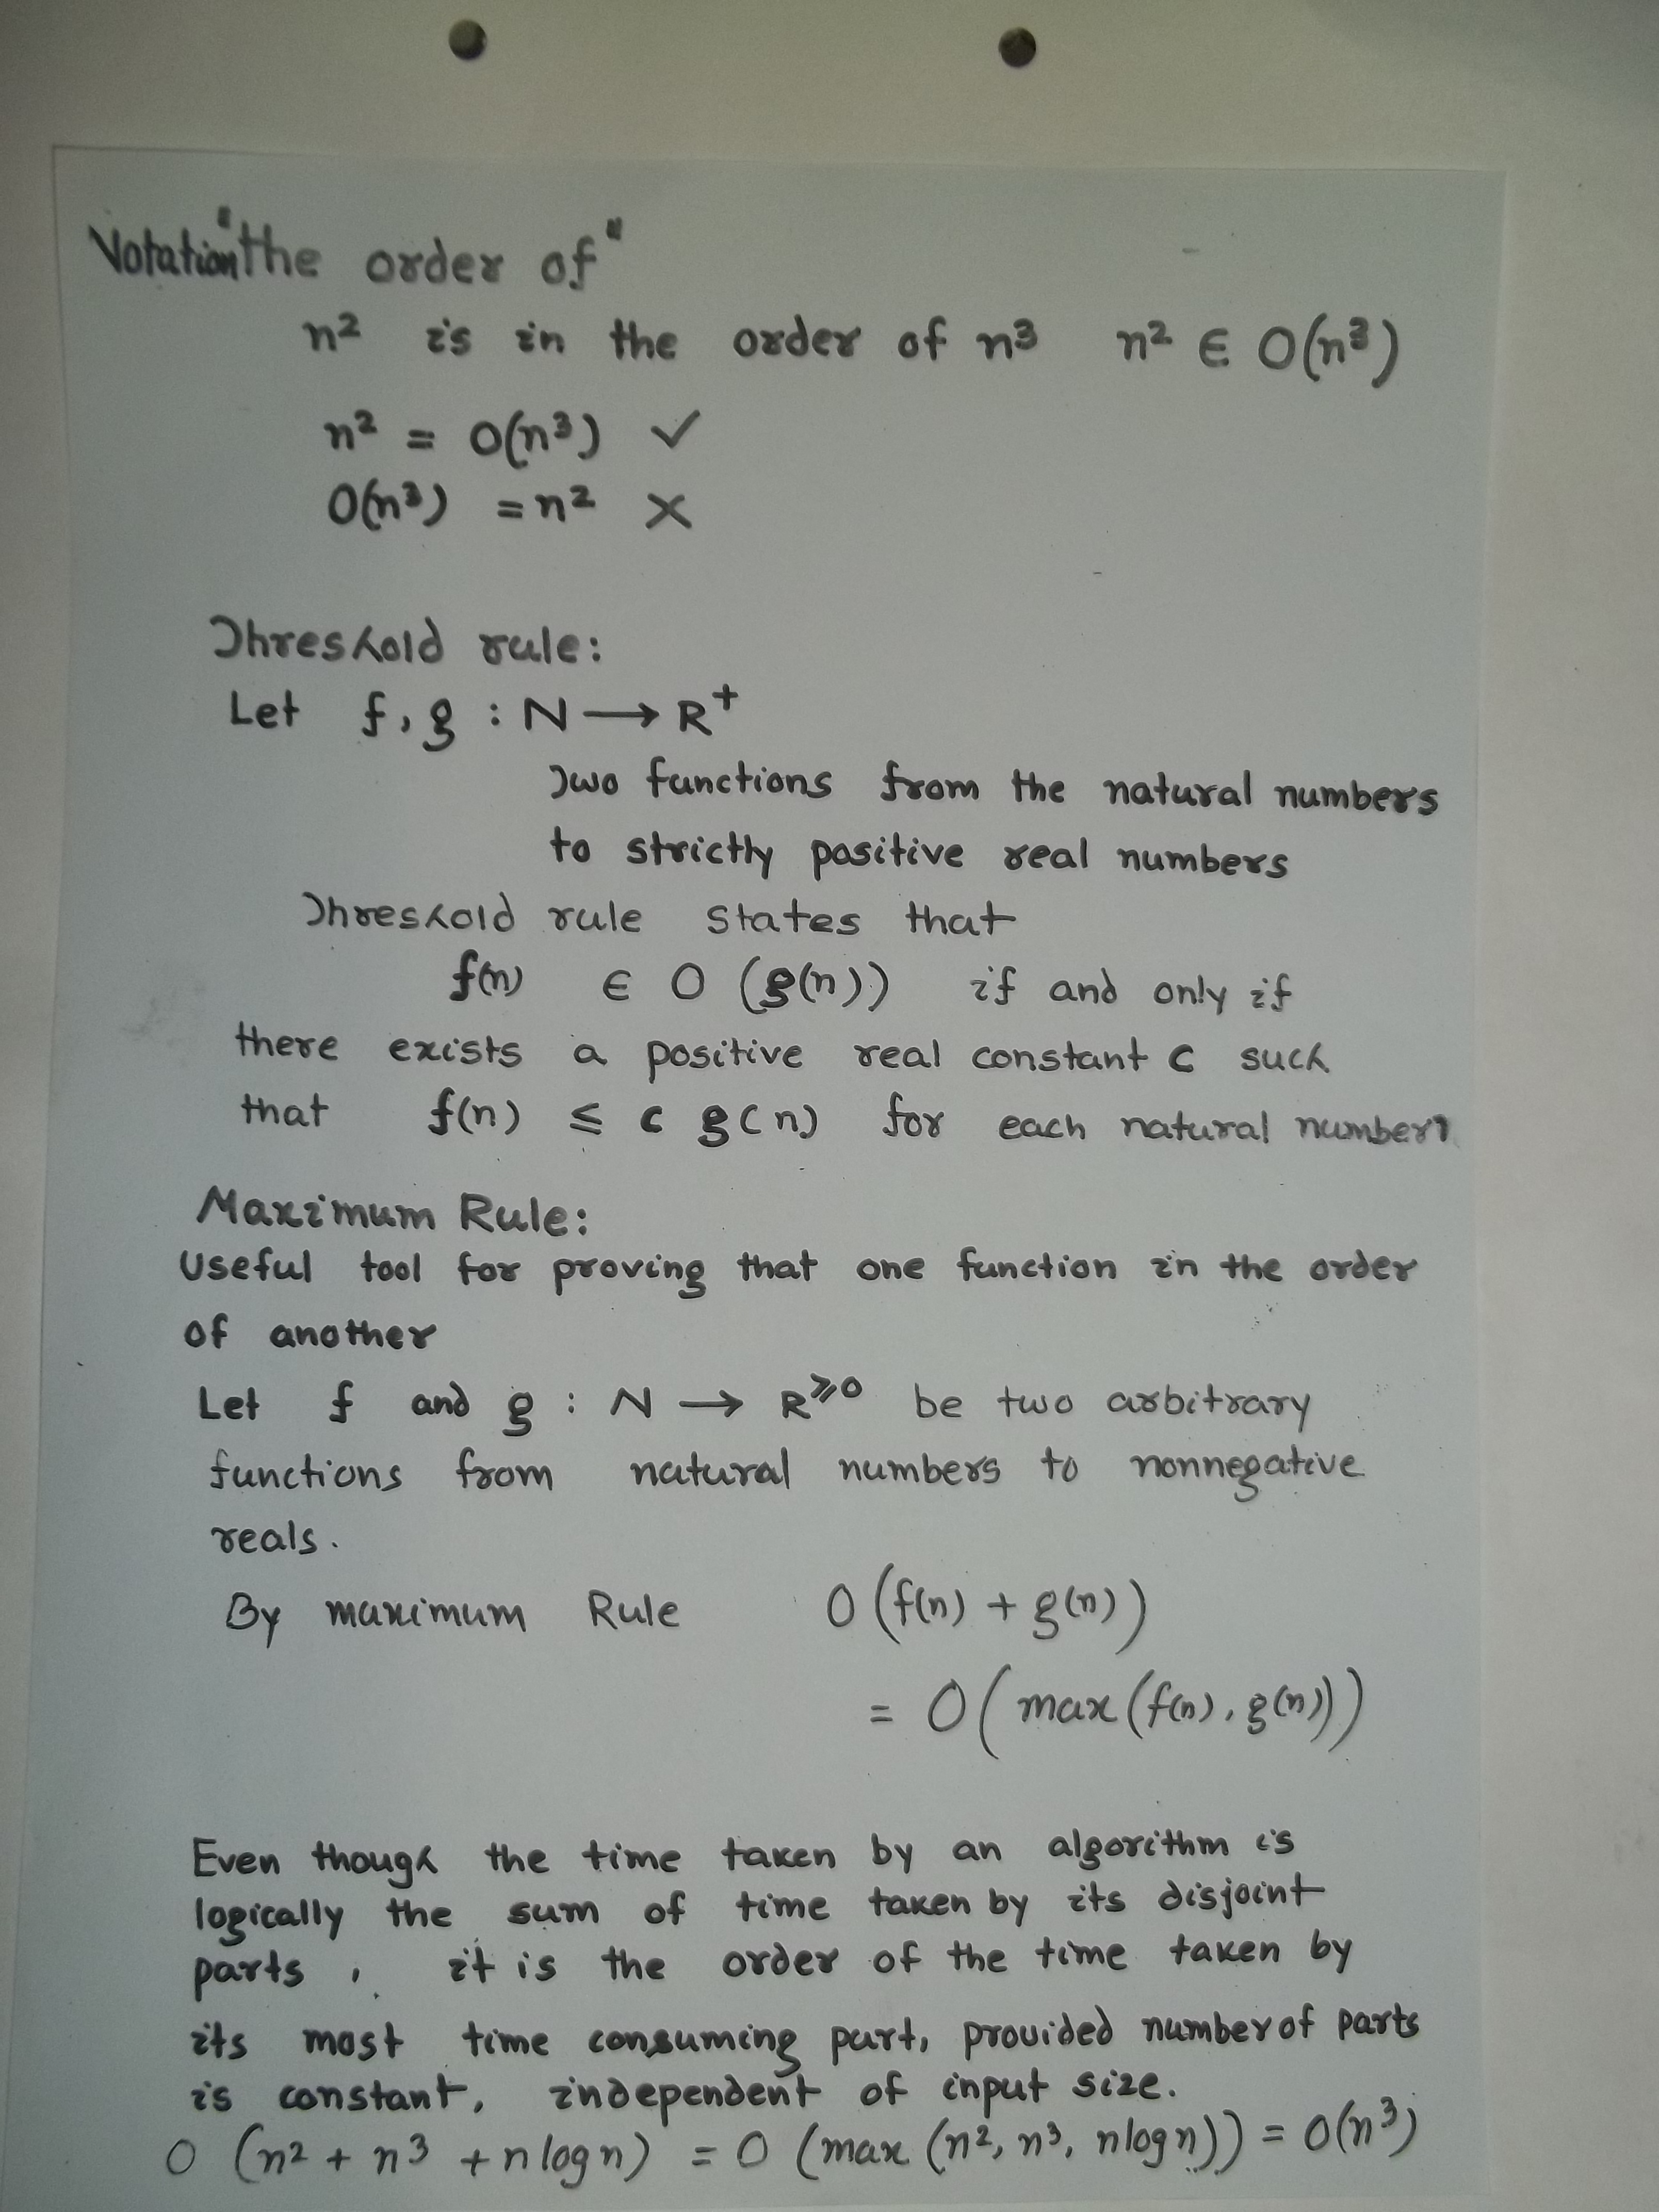 Notation "the order of"
n² is in the order of n³ n² ∈ O(n³)
n² = O(n³) ✓
O(n³) = n² ×
Threshold rule:
Let f, g : N → R⁺
Two functions from the natural numbers
to strictly positive real numbers
Threshold rule states that
f(n) ∈ O (g(n)) if and only if
there exists a positive real constant c such
that f(n) ≤ c g(n) for each natural number
Maximum Rule:
Useful tool for proving that one function in the order
of another
Let f and g : N → R^≥0 be two arbitrary
functions from natural numbers to nonnegative
reals.
By maximum Rule O (f(n) + g(n))
= O ( max (f(n), g(n)))
Even though the time taken by an algorithm is
logically the sum of time taken by its disjoint
parts, it is the order of the time taken by
its most time consuming part, provided number of parts
is constant, independent of input size.
O (n² + n³ + n log n) = O (max (n², n³, n log n)) = O(n³)